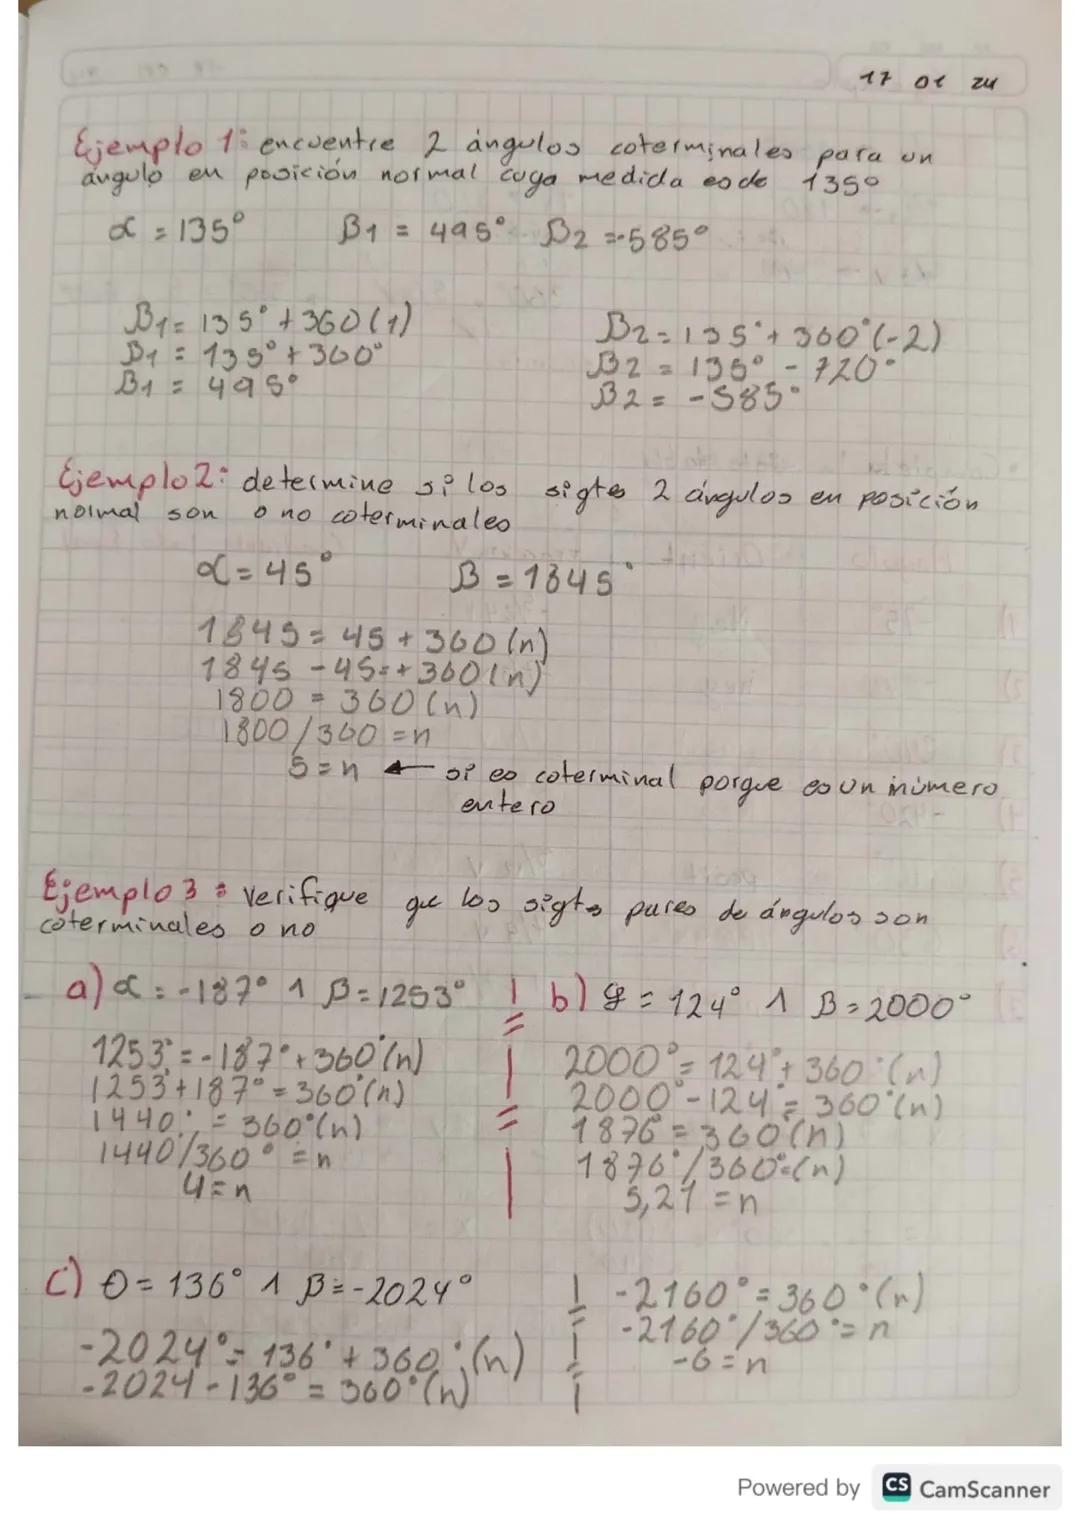 17 01 24
Ejemplo 1: encuentre 2 ángulos coterminales para un
ángulo en posición normal cuya medida es de 135°
α = 135° β1 = 495° β2 = -585°
β1 = 135° + 360(1)
β1 = 135° + 360°
β1 = 495°
β2 = 135° + 360°(-2)
β2 = 135° - 720°
β2 = -585°
Ejemplo 2: determine si los sigtes 2 ángulos en posición
normal son o no coterminales
α = 45° β = 1845°
1845 = 45 + 360(n)
1845 - 45 = + 360(n)
1800 = 360(n)
1800/360 = n
5 = n ← si es coterminal porque es un número
entero
Ejemplo 3: verifique que los sigts pares de ángulos son
coterminales o no
a) α = -187° ∧ β = 1253°
1253° = -187° + 360°(n)
1253° + 187° = 360°(n)
1440° = 360°(n)
1440°/360° = n
4 = n
b) = 124° ∧ β = 2000°
2000° = 124° + 360°(n)
2000° - 124° = 360°(n)
1876° = 360°(n)
1876°/360° = (n)
5,21 = n
c) θ = 136° ∧ β = -2024°
-2024° = 136° + 360°(n)
-2024 - 136° = 360°(n)
-2160° = 360°(n)
-2160°/360° = n
-6 = n
Powered by CS CamScanner